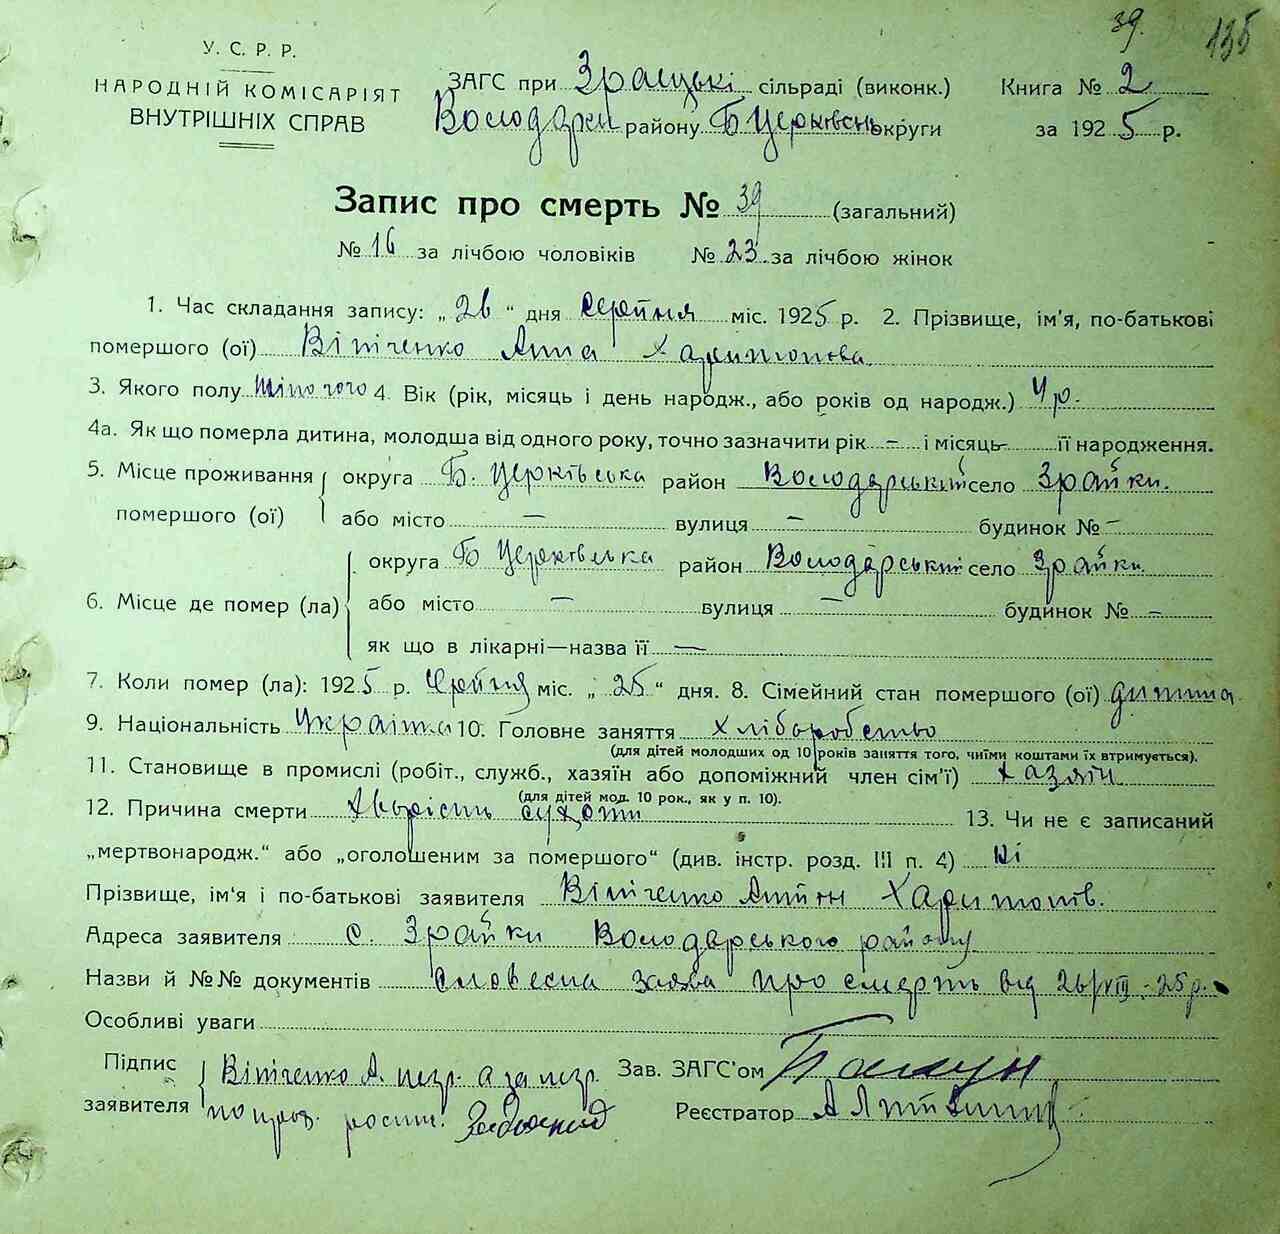 39. 135
У. С. Р. Р.
НАРОДНІЙ КОМІСАРІЯТ
ВНУТРІШНІХ СПРАВ
ЗАГС при Зрацькі сільраді (виконк.) Книга № 2
Володарск району Б Церківськ округи за 1925 р.
Запис про смерть № 39 (загальний)
№ 16 за лічбою чоловіків № 23. за лічбою жінок
1. Час складання запису: „26“ дня серпня міс. 1925 р. 2. Прізвище, ім'я, по-батькові
помершого (ої) Вітіченко Анна Харитонова
3. Якого полу жіночого 4. Вік (рік, місяць і день народж., або років од народж.) 4 р.
4а. Як що померла дитина, молодша від одного року, точно зазначити рік – і місяць – її народження.
5. Місце проживання помершого (ої) округа Б. Церківська район Володарський село Зрайки.
або місто — вулиця – будинок № –
6. Місце де помер (ла) округа Б Церківська район Володарський село Зрайки
або місто — вулиця — будинок № –
як що в лікарні—назва її —
7. Коли помер (ла): 1925 р. Серпня міс. „25“ дня. 8. Сімейний стан помершого (ої) дитина
9. Національність Українка 10. Головне заняття Хліборобство
(для дітей молодших од 10 років заняття того, чиїми коштами їх втримується).
11. Становище в промислі (робіт., служб., хазяїн або допоміжний член сім'ї) Хазяїн
(для дітей мол. 10 рок., як у п. 10).
12. Причина смерти Хворість сухоти 13. Чи не є записаний
„мертвонародж.“ або „оголошеним за помершого“ (див. інстр. розд. III п. 4) Ні
Прізвище, ім'я і по-батькові заявителя Вітіченко Антон Харитонів.
Адреса заявителя с. Зрайки Володарського району
Назви й №№ документів словесна заява про смерть від 26/VIII-25 р.
Особливі уваги
Підпис заявителя Вітіченко А. незр. а за незр.
Зав. ЗАГС'ом
по проз. росп.
Реєстратор А Литвин